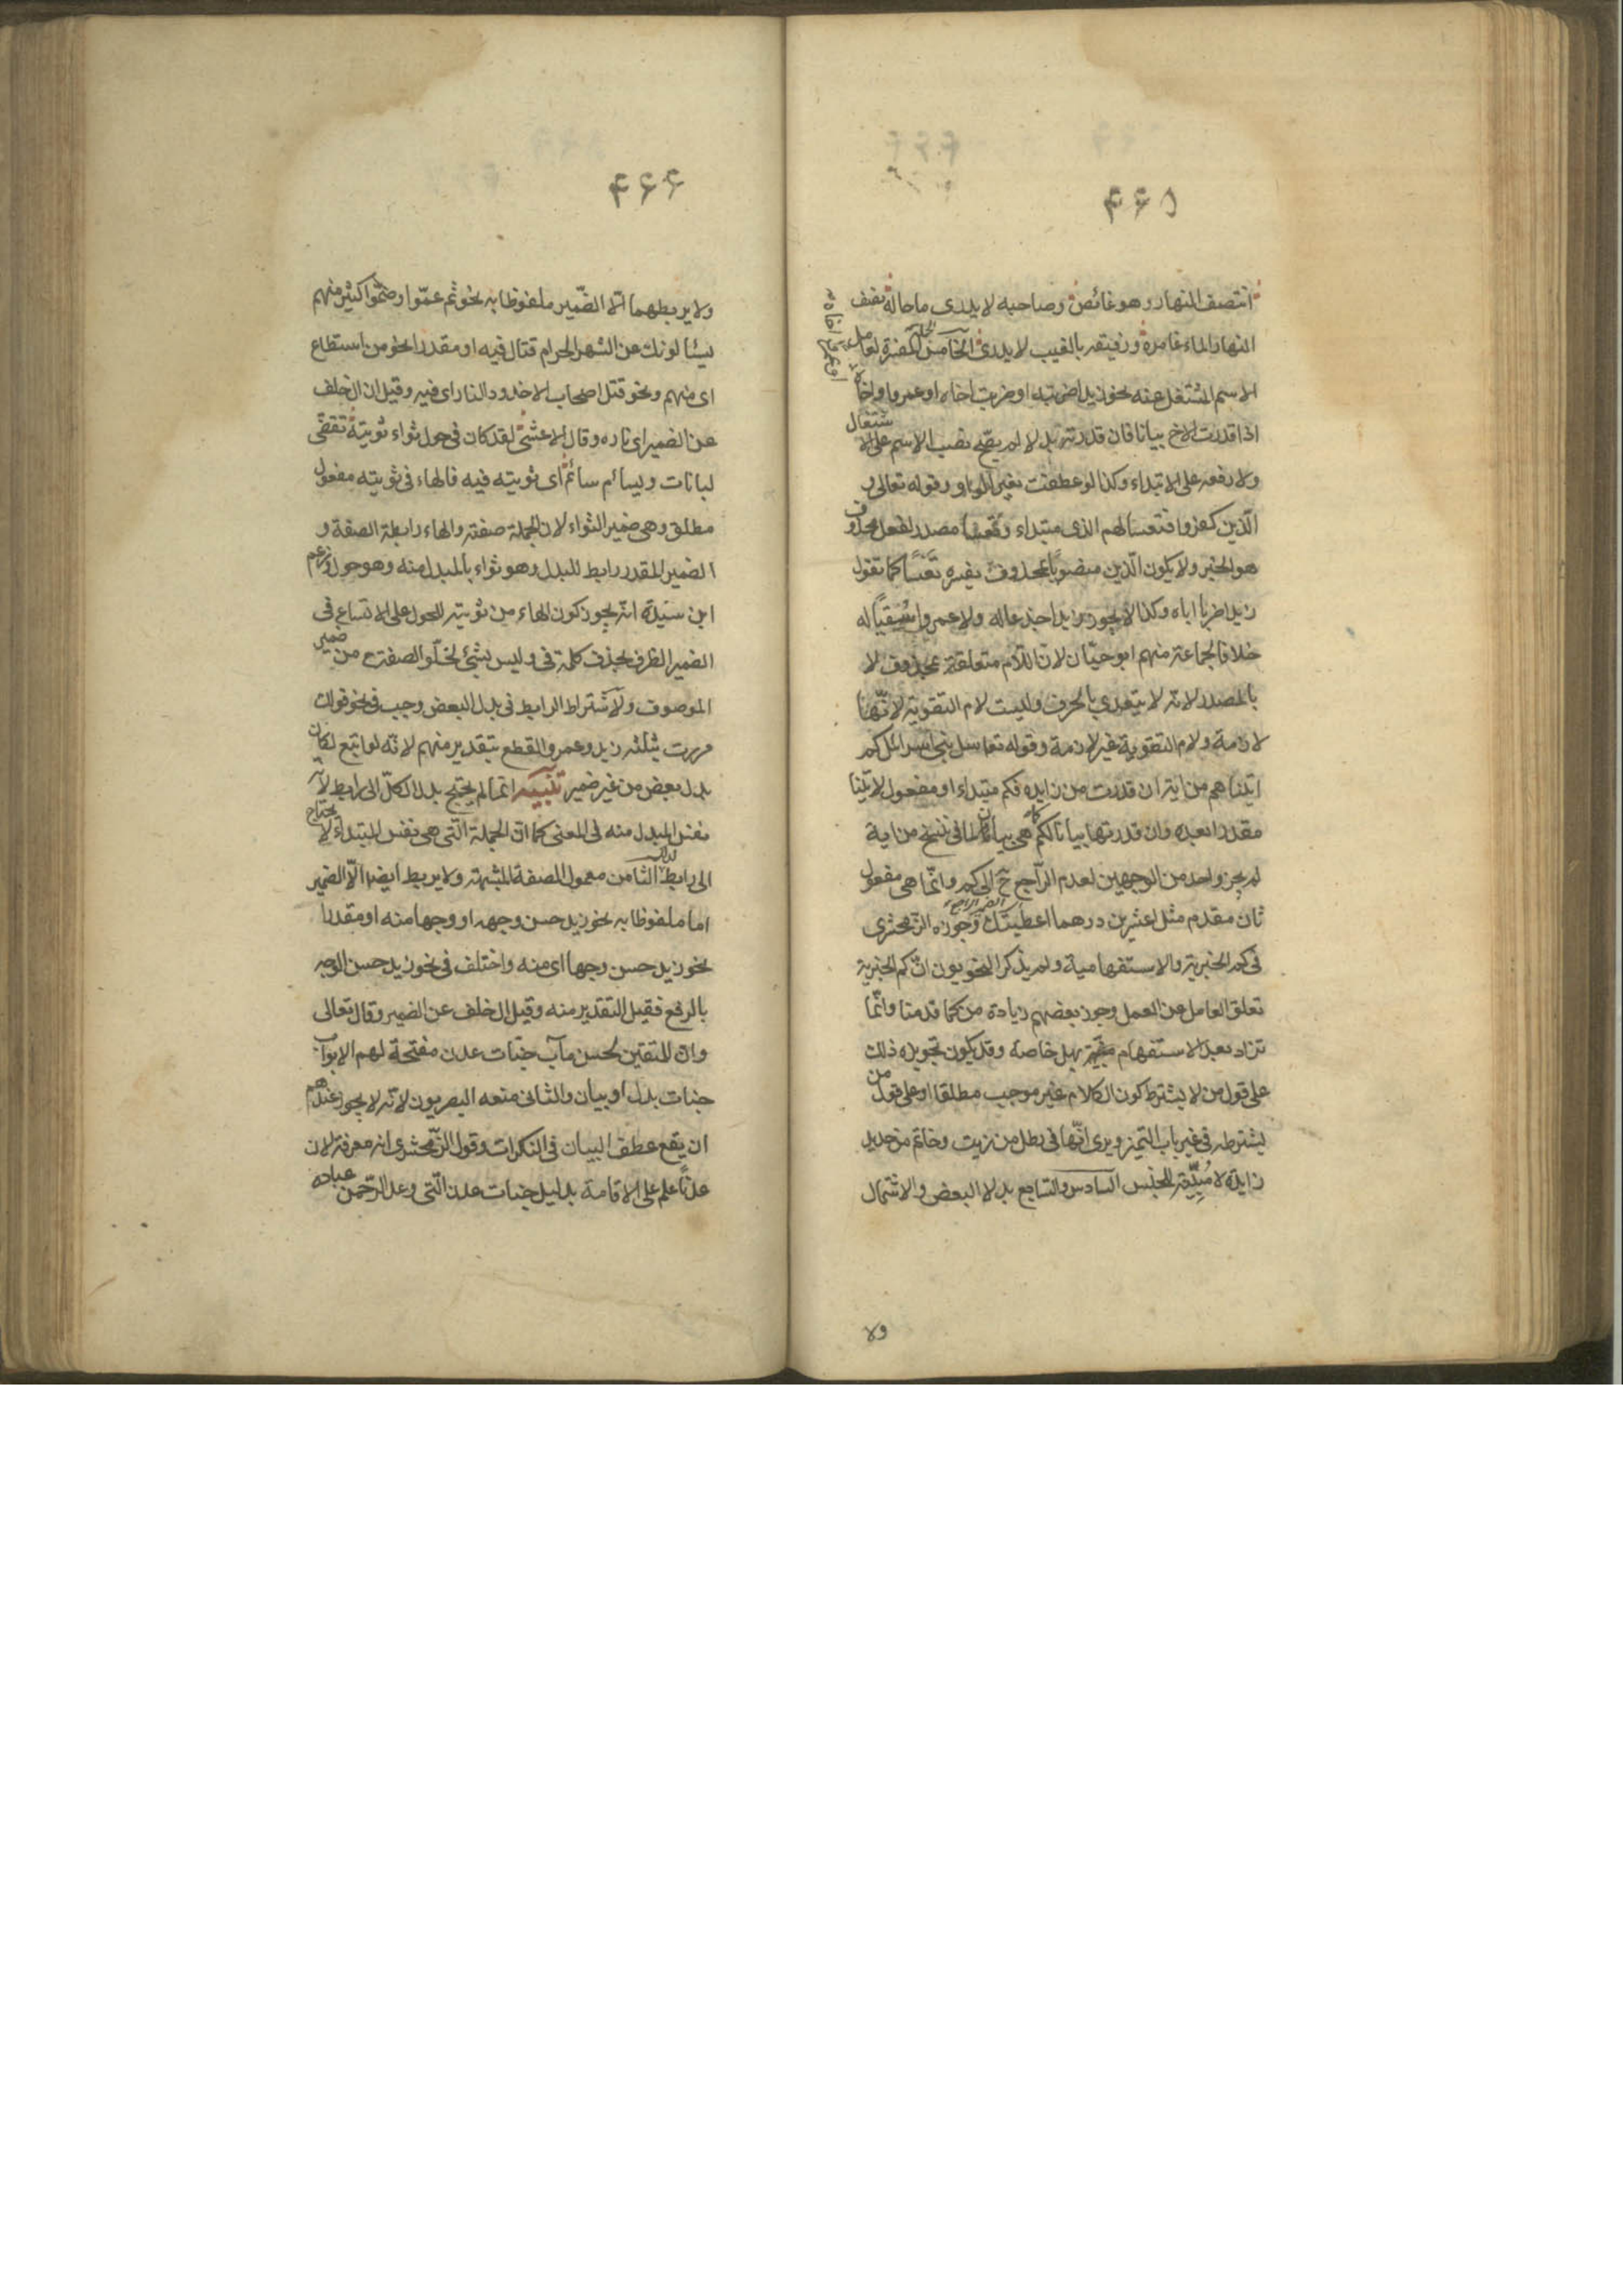 ۴۶۵
انتصف النهار وهو غائص وصاحبه لا يدرى ما حاله نصف
النهار الماء غامره ورفيقه بالغيب لا يدرى الخامس الجملة المفسرة لعامل
الاسم المشتغل عنه نحو زيدا ضربته او ضربت اخاه او عمروا واخاه
اذا قدرت الاخ بيانا فان قدرته بدلا لم يصح نصب الاسم على الاشتغال
ولا رفعه على الابتداء وكذا لو عطفت بغير الواو وقوله تعالى و
الذين كفروا فتعسا لهم الذى مبتداء وتعسا مصدر لفعل محذوف
هو الخبر ولا يكون الذين منصوبا بمحذوف يفسره تعسا كما تقول
زيدا ضربا اياه وكذا لا يجوز زيدا جذعا له ولا عمروا سقيا له
خلافا لجماعة منهم ابو حيان لان اللام متعلقة بمحذوف لا
بالمصدر لانه لا يتعدى بالحرف وليست لام التقوية لانها
لازمة ولام التقوية غير لازمة وقوله تعا سل بنى اسرائل كم
اتيناهم من اية ان قدرت من زايده فكم مبتداء او مفعول لاتينا
مقدرا بعده وان قدرتها بيانا لكم كما هى بيان لما فى ننسخ من اية
لم يجز واحد من الوجهين لعدم الراجع ح الى كم وانما هى مفعول
ثان مقدم مثل اعشرين درهما اعطيتك وجوزه الزمخشرى
فى كم الخبرية والاستفهامية ولم يذكر النحويون ان كم الخبرية
تعلق العامل عن العمل وجوز بعضهم زيادة من كما قدمنا وانما
تزاد بعد الاستفهام بهل خاصة وقد يكون تجويزه ذلك
على قول من لا يشترط كون الكلام غير موجب مطلقا او على قول من
يشترطه فى غير باب التميز ويرى انها فى رطل من زيت وخاتم من حديد
زايدة لا مبينة للجنس السادس والسابع بدلا البعض والاشتمال
ولا
۴۶۶
ولا يربطهما الا الضمير ملفوظا به نحو ثم عموا وصموا كثير منهم
يسئالونك عن الشهر الحرام قتال فيه او مقدرا نحو من استطاع
اى منهم ونحو قتل اصحاب الاخدود النار اى فيه وقيل ان ال خلف
عن الضمير اى ناره وقال الاعشى لقد كان فى حول ثواء ثويته تقضى
لبانات ويسام سائم اى ثويته فيه فالهاء فى ثويته مفعول
مطلق وهى ضمير الثواء لان الجملة صفته والهاء رابطة الصفة و
الضمير المقدر رابط للبدل وهو ثواء بالمبدل منه وهو حول وزعم
ابن سيدة انه يجوز كون الهاء من ثويته للحول على الاتساع فى
الضمير الظرف بحذف كلمة فى وليس بشئ لخلو الصفة ح من ضمير
الموصوف ولاشتراط الرابط فى بدل البعض وجب فى نحو قولك
مررت بثلثه زيد وعمرو القطع بتقدير منهم لانه لو اتبع لكان
بدل بعض من غير ضمير تنبيه انما لم يحتج بدل الكل الى رابط لانه
نفس المبدل منه فى المعنى كما ان الجملة التى هى نفس المبتداء لا يحتاج
الى رابط لذلك الثامن معمول الصفة المشبهة ولا يربط ايضا الا الضمير
اما ملفوظا به نحو زيد حسن وجهه او وجها منه او مقدرا
نحو زيد حسن وجها اى منه واختلف فى نحو زيد حسن الوجه
بالرفع فقيل التقدير منه وقيل ال خلف عن الضمير وقال تعالى
وان للمتقين لحسن مآب جنات عدن مفتحة لهم الابواب
جنات بدل او بيان والثانى منعه البصريون لانه لا يجوز عندهم
ان يقع عطف البيان فى النكرات وقول الزمخشرى انه معرفة لان
عدنا علم على الاقامة بدليل جنات عدن التى وعد الرحمن عباده